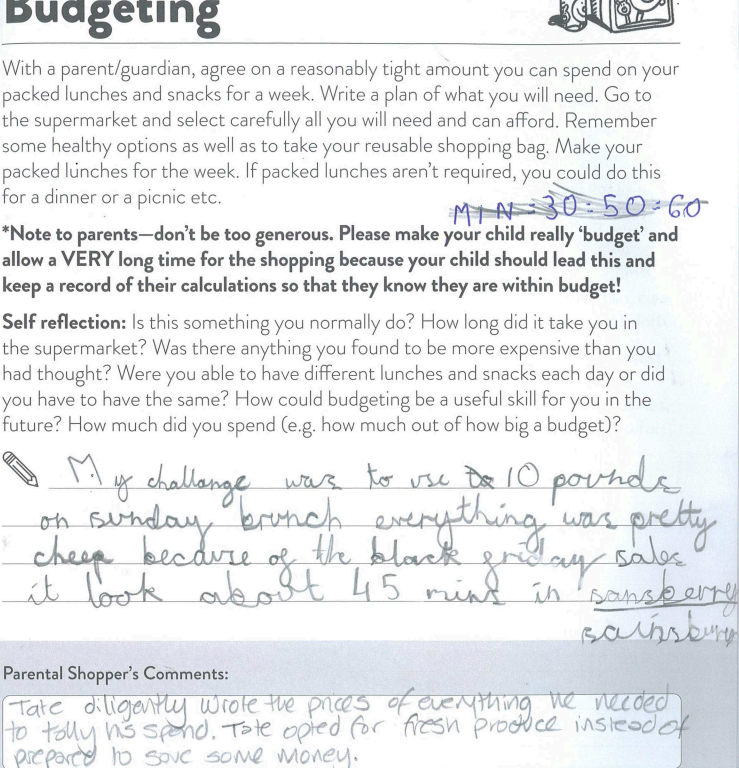 Budgeting
With a parent/guardian, agree on a reasonably tight amount you can spend on your
packed lunches and snacks for a week. Write a plan of what you will need. Go to
the supermarket and select carefully all you will need and can afford. Remember
some healthy options as well as to take your reusable shopping bag. Make your
packed lunches for the week. If packed lunches aren't required, you could do this
for a dinner or a picnic etc.
MIN = 30 = 50 = 60
*Note to parents—don't be too generous. Please make your child really 'budget' and
allow a VERY long time for the shopping because your child should lead this and
keep a record of their calculations so that they know they are within budget!
Self reflection: Is this something you normally do? How long did it take you in
the supermarket? Was there anything you found to be more expensive than you
had thought? Were you able to have different lunches and snacks each day or did
you have to have the same? How could budgeting be a useful skill for you in the
future? How much did you spend (e.g. how much out of how big a budget)?
My challange was to use 10 pounds
on sunday brunch everything was pretty
cheep because of the black friday sales
it took about 45 mins in sansberry
sainsbury
Parental Shopper's Comments:
Tate diligently wrote the prices of everything he needed
to tally his spend. Tate opted for fresh produce instead of
prepared to save some money.